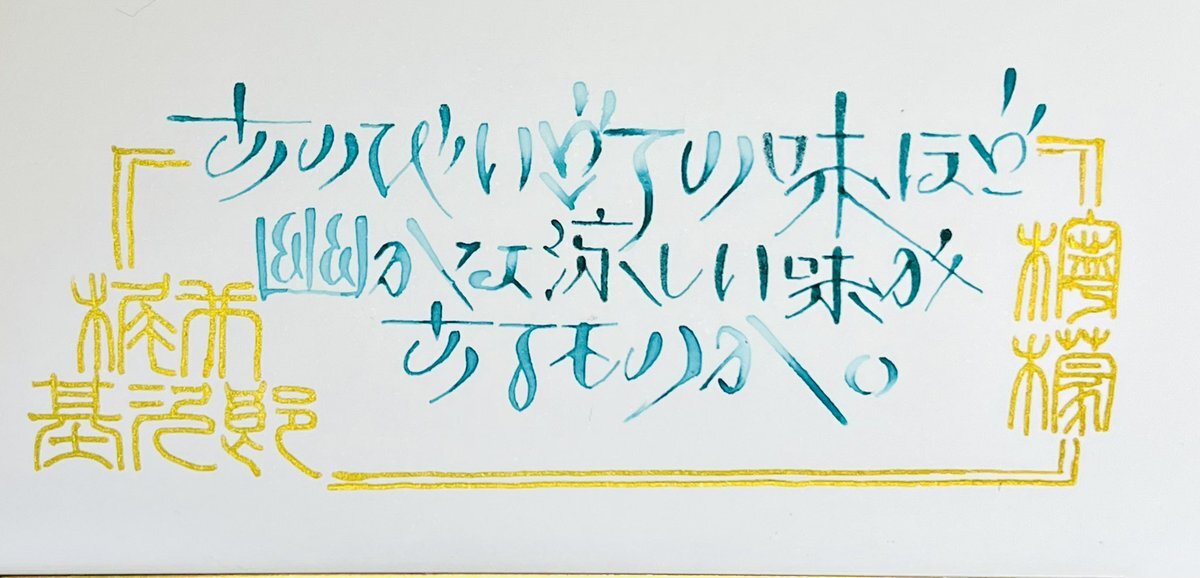 あのびいどろの味ほど
幽かな涼しい味が
あるものか。
檸檬
梶井
基次郎